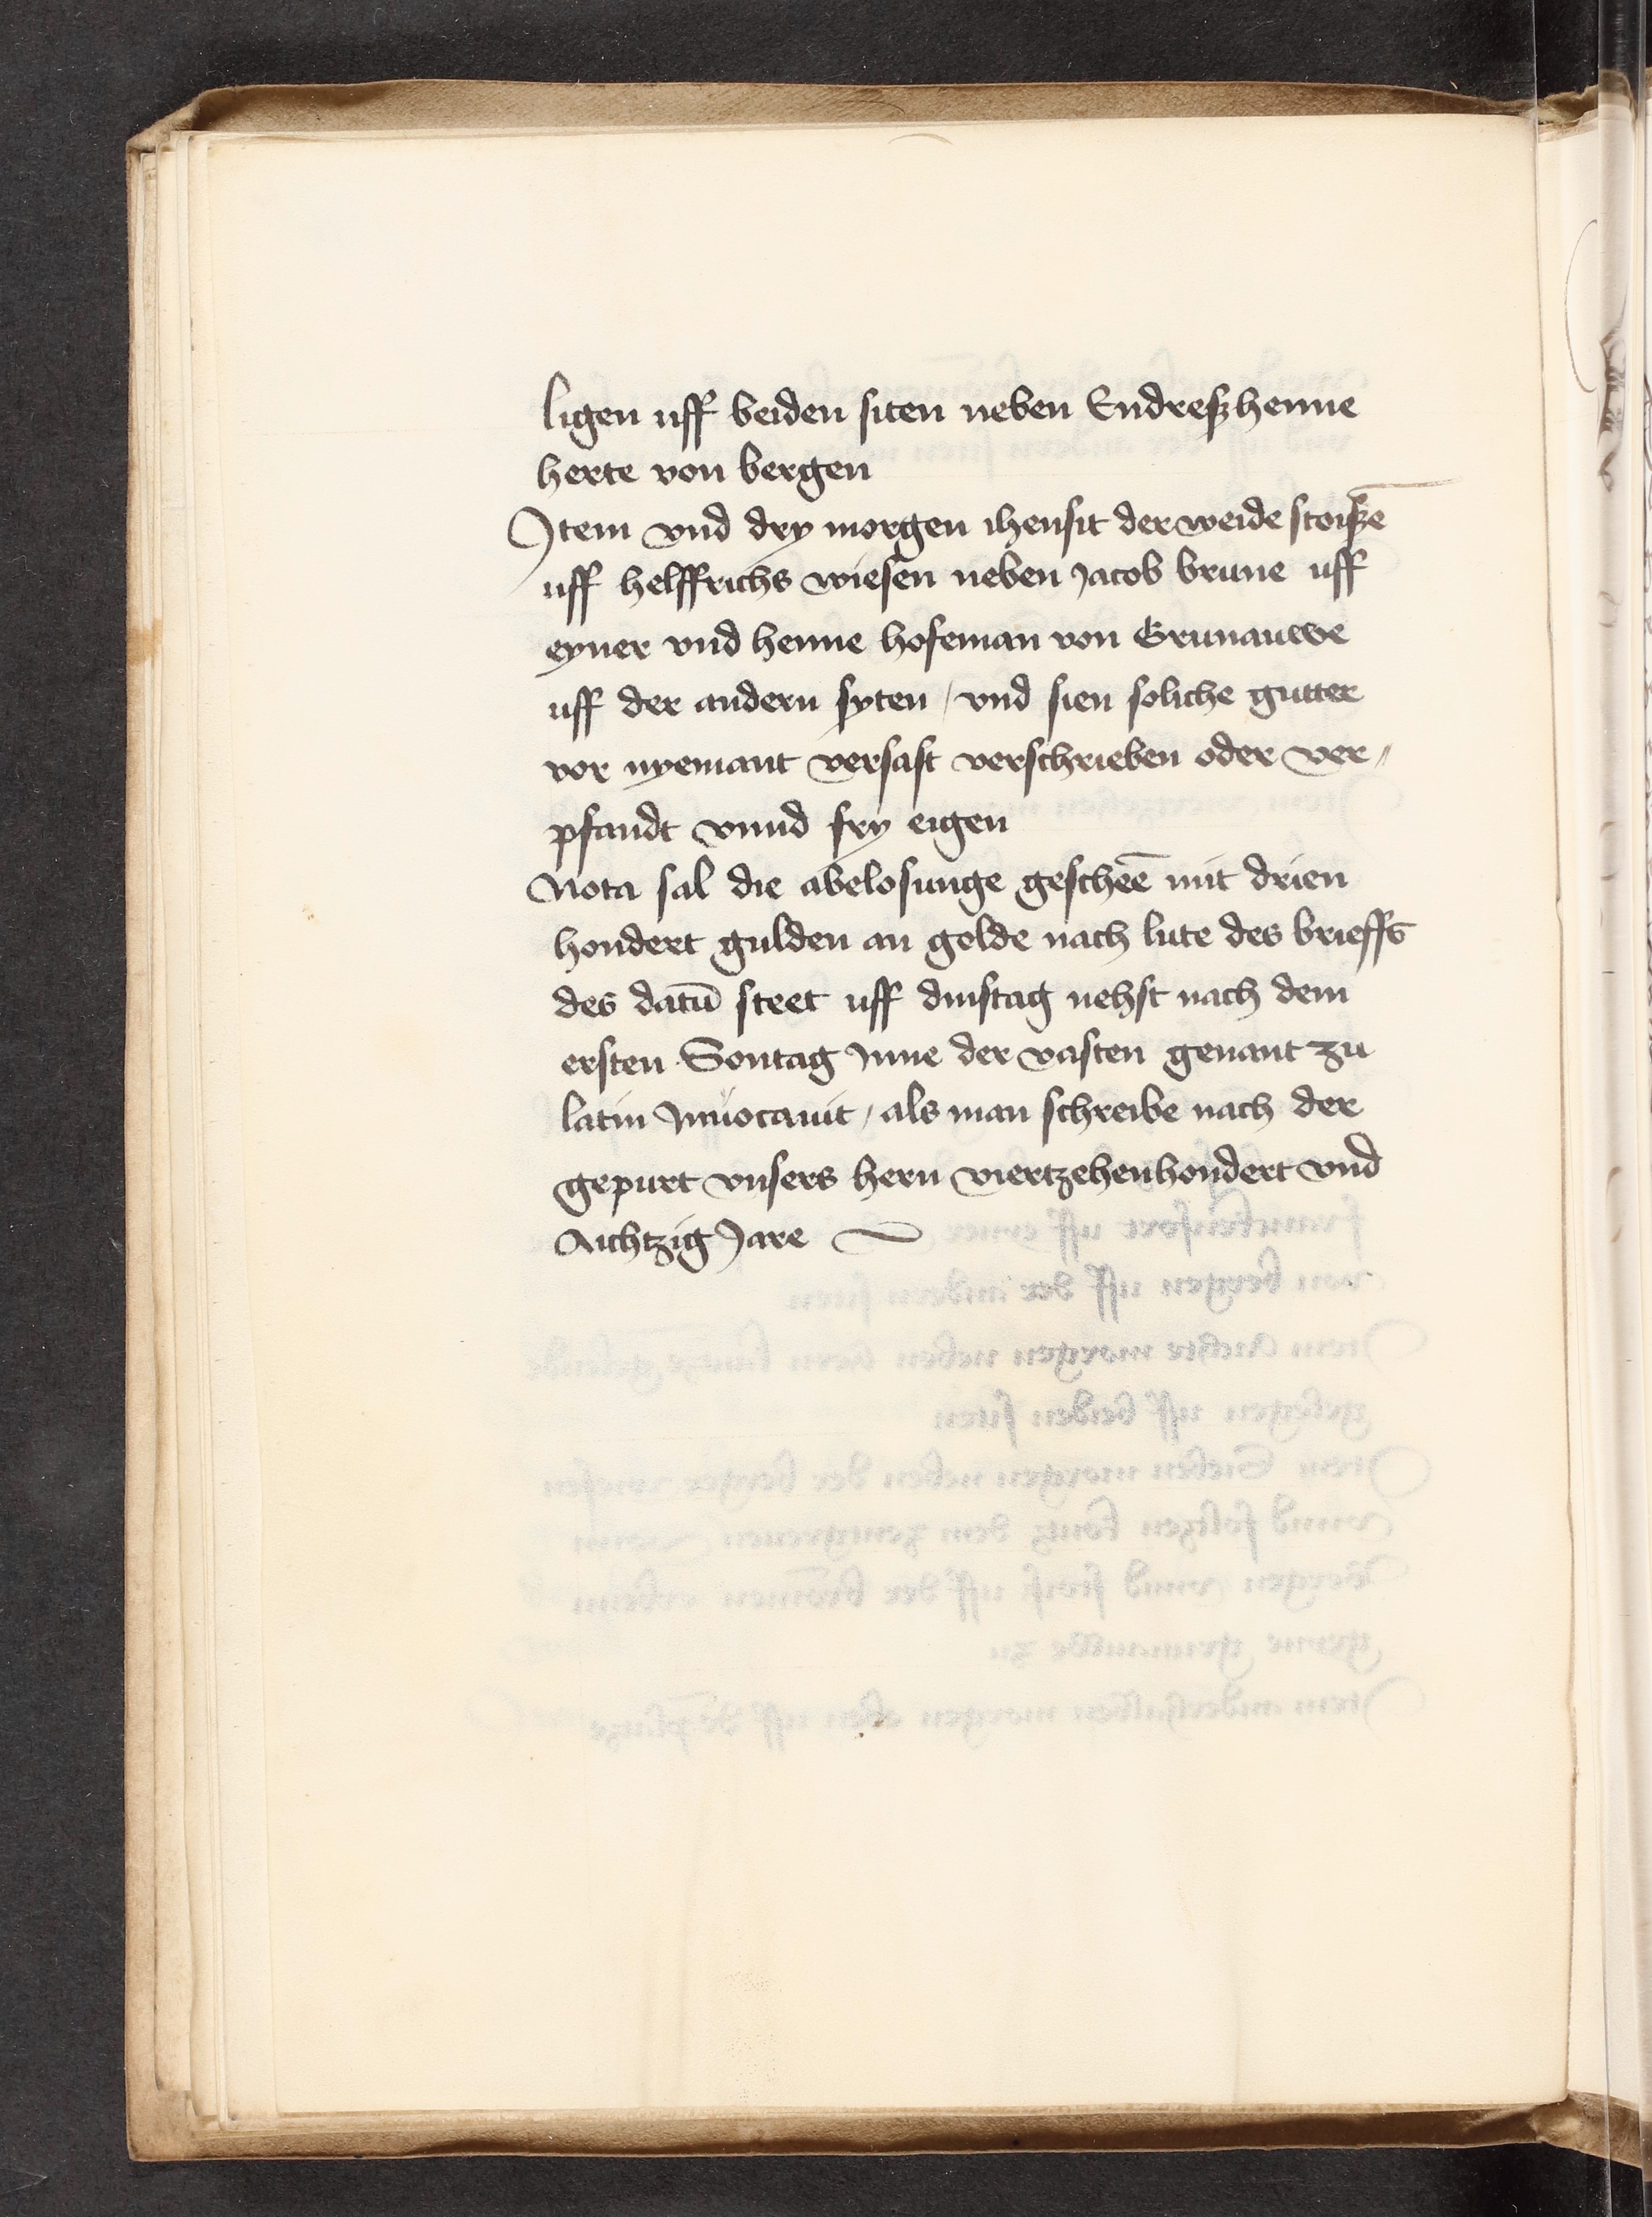 ligen uff beiden siten neben Endreßhenne
herte von bergen
Item vnd dry morgen ihensit der weide stoißē
uff helffrichs wiesen neben Jacob brune uff
eyner vnd henne hofeman von Grunauwe
uff der andern syten / vnd sien soliche gutter
vor nyemant versast verschrieben oder ver//
pfandt vnnd fry eigen
Nota sal die abelosunge gescheē mit drien
hondert gulden an golde nach lute des brieffs
des datū steet uff dinstag nehst nach dem
ersten Sontag Inne der vasten genant zu
latin Inuocauit / als man schreibe nach der
gepurt vnsers hern viertzehenhondert vnd
Aichtzig Jare